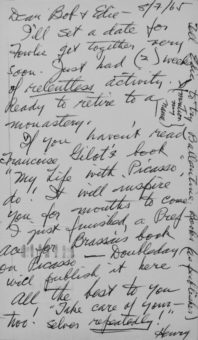 Dear Bob + Edie — 5/7/65
I'll set a date for
get together very
soon. Just had (2) weeks
of relentless activity.
Ready to retire to a
monastery.
If you haven't read
Francoise Gilot's book
"My Life with Picasso"
do! It will inspire
you for months to come.
I just finished a Pref
ace for Brassai's book
on Picasso — Doubleday
will publish it here
All the best to you
two! "Take care of your-
selves repeatedly!"
Henry
Tell Edie to try Ballantine Books (publisher)